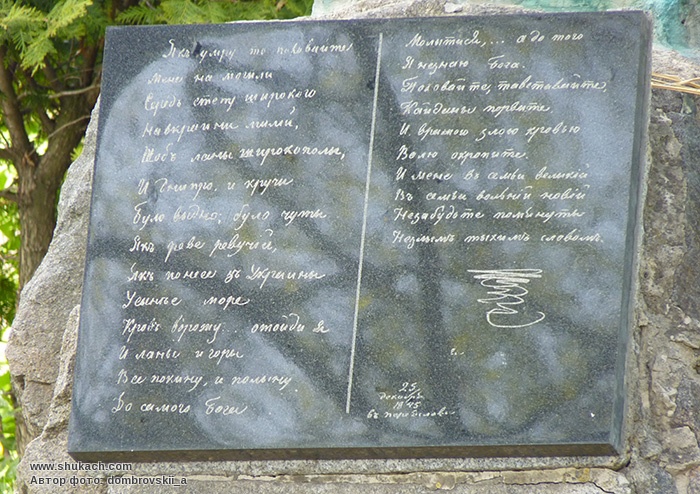 Якъ умру то поховайте
Мене на могыли
Середъ степу широкого
На вкраини мылій,
Щобъ ланы широкополы,
И Днипро, и кручи
Було выдно; було чуты
Якъ реве ревучій,
Якъ понесе зъ Украины
У синѣе море
Кровъ ворожу... отойди я
И ланы и горы
Все покину, и полыну
До самого Бога
Молытися,... а до того
Я незнаю Бога.
Поховайте, та вставайте,
Кайданы порвите
И вражою злою кровью
Волю окропите.
И мене въ семьи великій
Въ семьи вольній новій
Незабудьте помянуты
Незлымъ тыхимъ словомъ.
25
декабря
1845
въ
www.shukach.com
Автор фото: dombrovskii_a